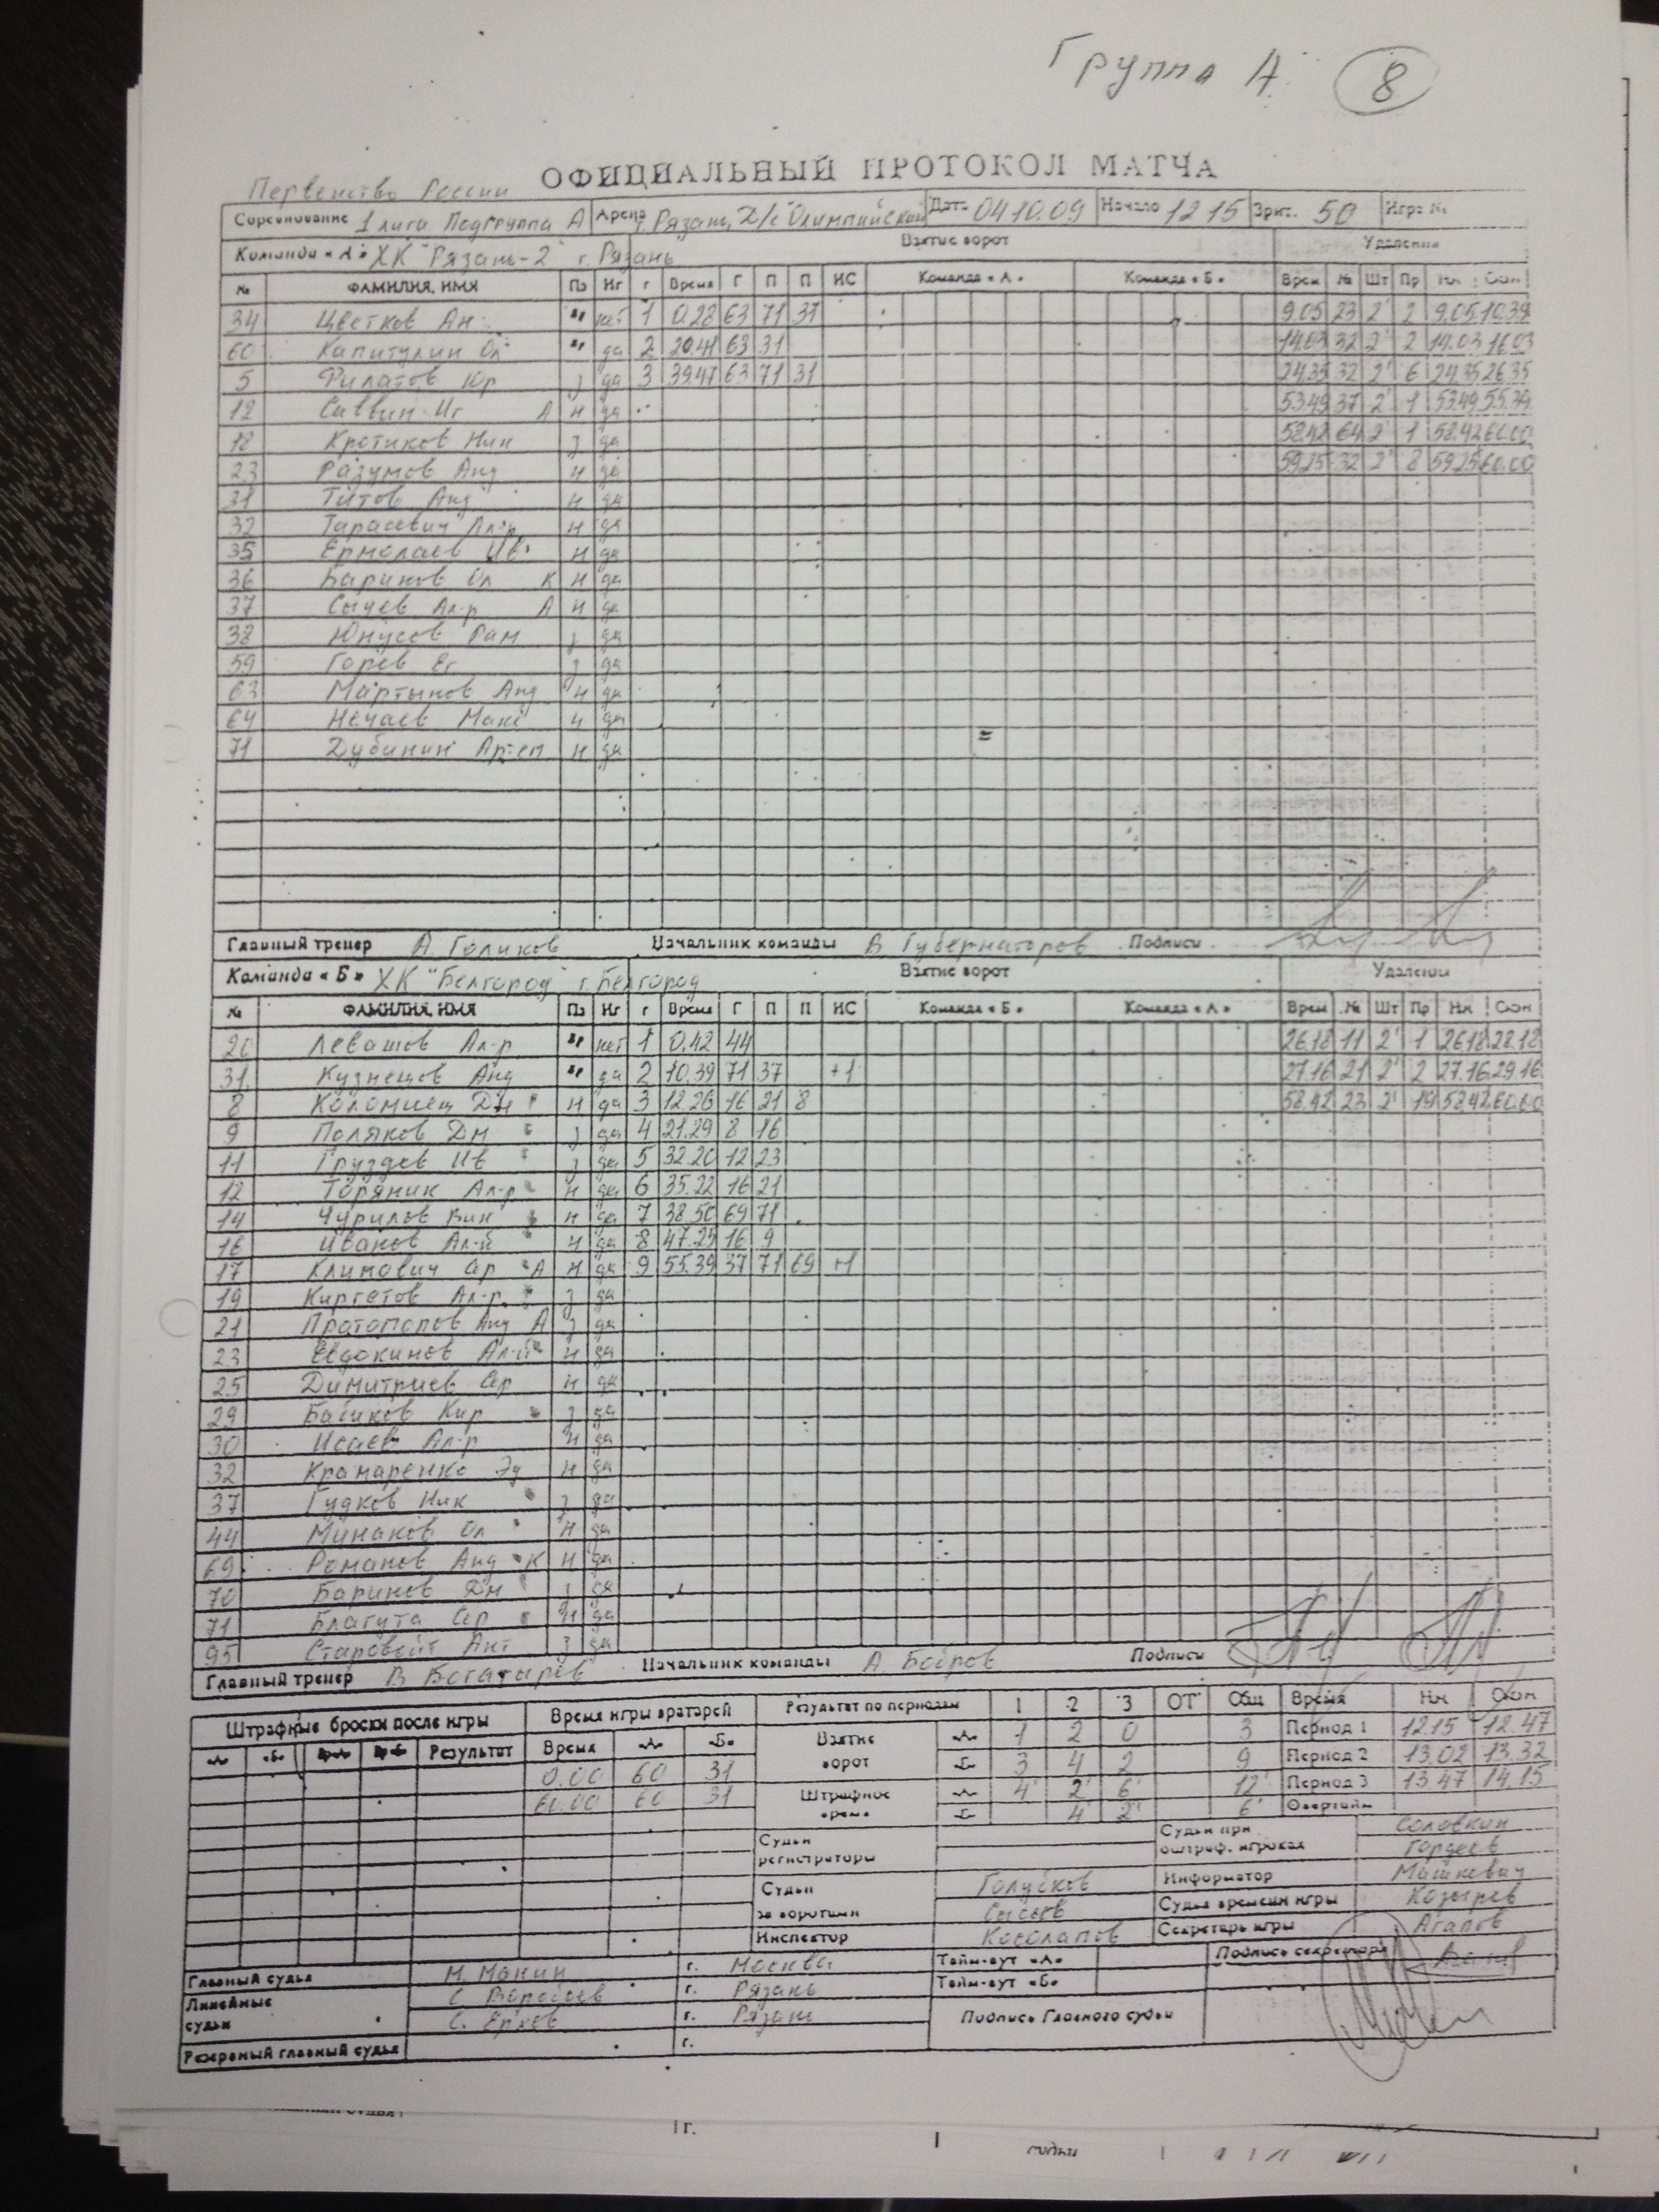 Группа А 8
ОФИЦИАЛЬНЫЙ ПРОТОКОЛ МАТЧА
Первенство России
Соревнование 1 лига Подгруппа А Арена г. Рязань, Д/с "Олимпийский" Дата 04.10.09 Начало 12 15 Зрит. 50 Игра №
Команда «А» ХК "Рязань-2" г. Рязань Взятие ворот Удаления
№ ФАМИЛИЯ, ИМЯ Пз Нг г Время Г П П ИС Команда «А» Команда «Б» Врем № Шт Пр Нч Окон
34 Цветков Ан вр нет 1 0.28 63 71 31 9.05 23 2' 2 9.05 10.39
60 Капитулин Ол вр да 2 20.41 63 31 14.03 32 2' 2 14.03 16.03
5 Филатов Юр з да 3 39.47 63 71 31 24.35 32 2' 6 24.35 26.35
12 Саввин Иг А н да 53.49 37 2' 1 53.49 55.39
18 Кротиков Ник з да 58.42 64 2' 1 58.42 60.00
23 Разумов Анд н да 59.25 32 2' 8 59.25 60.00
31 Титов Анд н да
32 Тарасевич Ал-р н да
35 Ермолаев Ив н да
36 Баринов Ол К н да
37 Сычев Ал-р А н да
38 Юнусов Рам з да
59 Горев Ег з да
63 Мартынов Анд н да
64 Нечаев Макс н да
71 Дубинин Артем н да
Главный тренер А. Голиков Начальник команды В. Губернаторов Подписи
Команда «Б» ХК "Белгород" г. Белгород Взятие ворот Удаления
№ ФАМИЛИЯ, ИМЯ Пз Нг г Время Г П П ИС Команда «Б» Команда «А» Врем № Шт Пр Нч Окон
20 Левашов Ал-р вр нет 1 0.42 44 26.18 11 2' 1 26.18 28.18
31 Кузнецов Анд вр да 2 10.39 71 37 +1 27.16 21 2' 2 27.16 29.16
8 Коломиец Дм н да 3 12.26 16 21 8 58.42 23 2' 19 58.42 60.00
9 Поляков Дм з да 4 21.29 8 16
11 Груздев Ив з да 5 32.20 12 23
12 Торяник Ал-р н да 6 35.22 16 21
14 Чурилов Вик н да 7 38.50 69 71
16 Иванов Ал-й н да 8 47.25 16 9
17 Климович Ср А н да 9 55.39 37 71 69 +1
19 Киргетов Ал-р з да
21 Протопопов Анд А з да
23 Евдокимов Ал-й н да
25 Димитриев Ср н да
29 Бабиков Кир з да
30 Исаев Ал-р н да
32 Крамаренко Эд н да
37 Гудков Ник з да
44 Минаков Ол н да
69 Романов Анд К н да
70 Баринов Дм з да
71 Благута Ср н да
95 Старовойт Ант з да
Главный тренер В. Богатырев Начальник команды А. Бобров Подписи
Штрафные броски после игры Время игры вратарей Результат по периодам 1 2 3 ОТ Общ Время Нч Окон
«А» «Б» Вр-А Вр-Б Результат Время «А» «Б» Взятие ворот «А» 1 2 0 3 Период 1 12.15 12.47
0.00 60 31 «Б» 3 4 2 9 Период 2 13.02 13.32
60.00 60 31 Штрафное время «А» 4' 2' 6' 12' Период 3 13.47 14.15
«Б» 4' 2' 6' Овертайм
Судьи регистраторы Судьи при оштраф. игроках Соловкин
Гордеев
Судьи за воротами Голубков Информатор Машкевич
Сысоев Судья времени игры Козырев
Инспектор Косолапов Секретарь игры Агапов
Главный судья М. Манин г. Москва Тайм-аут «А» Подпись секретаря
Линейные судьи г. Рязань Тайм-аут «Б»
С. Ершов г. Рязань Подпись Главного судьи
Резервный главный судья г.
г.